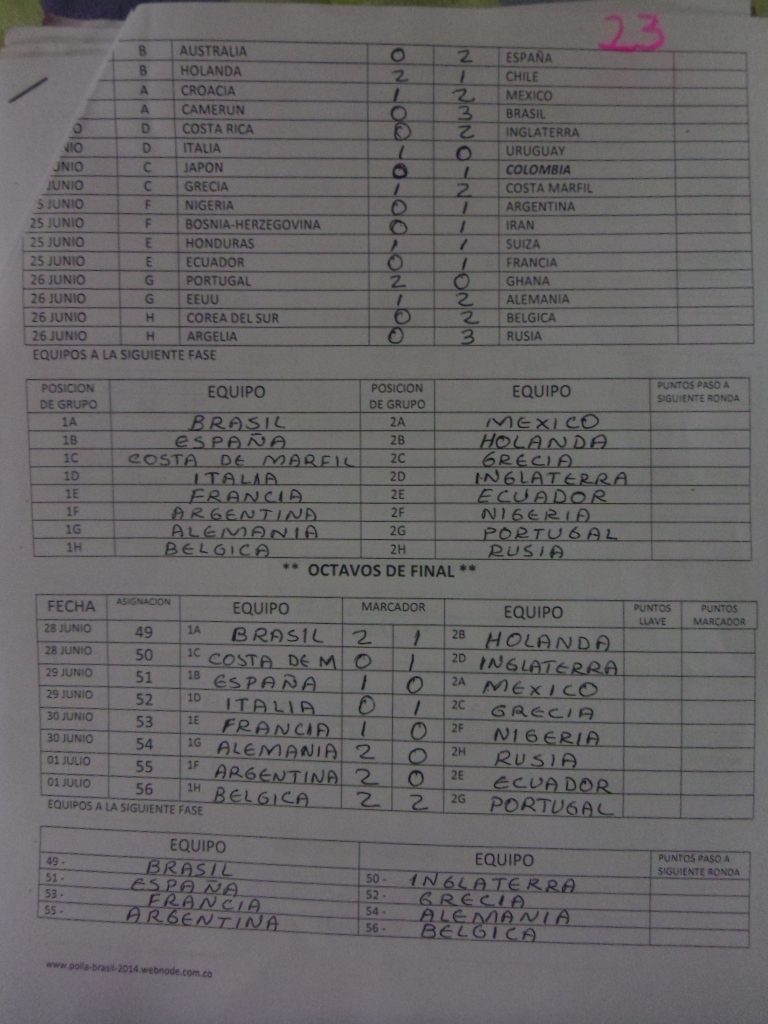 23
B AUSTRALIA 0 2 ESPAÑA
B HOLANDA 2 1 CHILE
A CROACIA 1 2 MEXICO
A CAMERUN 0 3 BRASIL
O D COSTA RICA 0 2 INGLATERRA
NIO D ITALIA 1 0 URUGUAY
JNIO C JAPON 0 1 COLOMBIA
JUNIO C GRECIA 1 2 COSTA MARFIL
5 JUNIO F NIGERIA 0 1 ARGENTINA
25 JUNIO F BOSNIA-HERZEGOVINA 0 1 IRAN
25 JUNIO E HONDURAS 1 1 SUIZA
25 JUNIO E ECUADOR 0 1 FRANCIA
26 JUNIO G PORTUGAL 2 0 GHANA
26 JUNIO G EEUU 1 2 ALEMANIA
26 JUNIO H COREA DEL SUR 0 2 BELGICA
26 JUNIO H ARGELIA 0 3 RUSIA
EQUIPOS A LA SIGUIENTE FASE
POSICION DE GRUPO EQUIPO POSICION DE GRUPO EQUIPO PUNTOS PASO A SIGUIENTE RONDA
1A BRASIL 2A MEXICO
1B ESPAÑA 2B HOLANDA
1C COSTA DE MARFIL 2C GRECIA
1D ITALIA 2D INGLATERRA
1E FRANCIA 2E ECUADOR
1F ARGENTINA 2F NIGERIA
1G ALEMANIA 2G PORTUGAL
1H BELGICA 2H RUSIA
** OCTAVOS DE FINAL **
FECHA ASIGNACION EQUIPO MARCADOR EQUIPO PUNTOS LLAVE PUNTOS MARCADOR
28 JUNIO 49 1A BRASIL 2 1 2B HOLANDA
28 JUNIO 50 1C COSTA DE M 0 1 2D INGLATERRA
29 JUNIO 51 1B ESPAÑA 1 0 2A MEXICO
29 JUNIO 52 1D ITALIA 0 1 2C GRECIA
30 JUNIO 53 1E FRANCIA 1 0 2F NIGERIA
30 JUNIO 54 1G ALEMANIA 2 0 2H RUSIA
01 JULIO 55 1F ARGENTINA 2 0 2E ECUADOR
01 JULIO 56 1H BELGICA 2 2 2G PORTUGAL
EQUIPOS A LA SIGUIENTE FASE
EQUIPO EQUIPO PUNTOS PASO A SIGUIENTE RONDA
49 - BRASIL 50 - INGLATERRA
51 - ESPAÑA 52 - GRECIA
53 - FRANCIA 54 - ALEMANIA
55 - ARGENTINA 56 - BELGICA
www.polla-brasil-2014.webnode.com.co